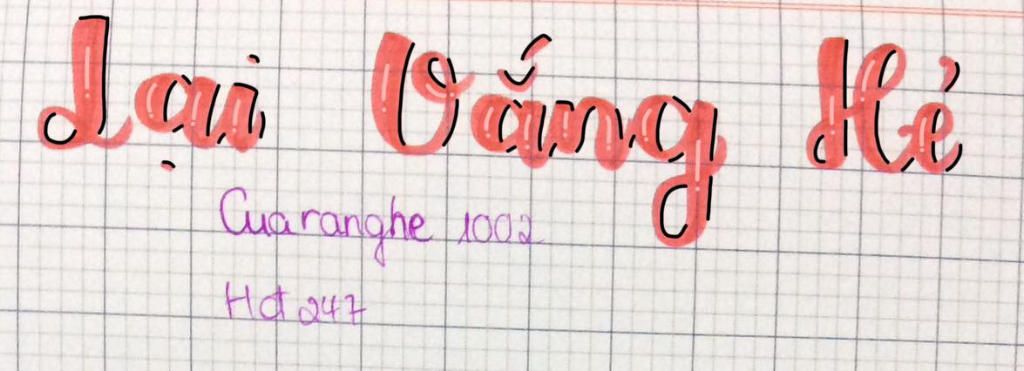 Lại Vắng Hẻ
Cuaranghe 1002
Hđ247